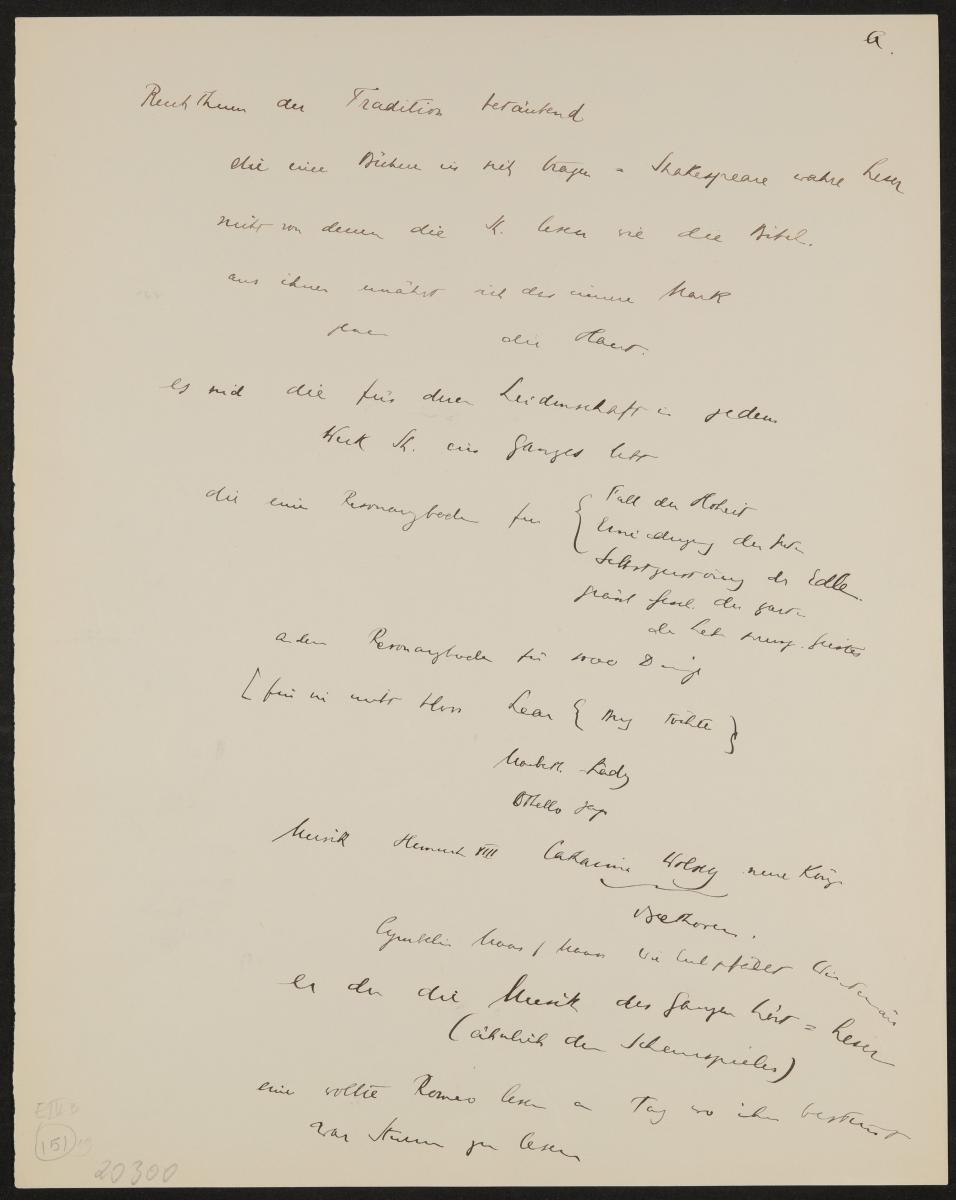 a.
Reichthum der Tradition betäubend
die eine Bühne in sich tragen = Shakespeare wahre Leser
nicht von denen die Sh. lesen wie die Bibel.
aus ihnen ernährt sich das innere Mark
die Haut.
es sind die für deren Leidenschaft in jedem
Werk Sh. ein Ganzes lebt
die einen Resonanzboden für { Fall der Hoheit
Erniedrigung der
Selbstzerstörung der Edlen.
der
der
andere Resonanzboden für 1000 Dinge
[ für sie nicht bloss Lear { Töchter }
Macbeth. Lady
Othello Jago
Musik Heinrich VIII Catharina Wolsey neue
Beethoven.
Cymbelin Maas f Maas wie Wintermär
er der die Musik des Ganzen hört = Leser
(ähnlich den Schauspieler)
einer wollte Romeo lesen an Tag wo ihm bestimmt
war Sturm zu lesen
E III B
151
20300